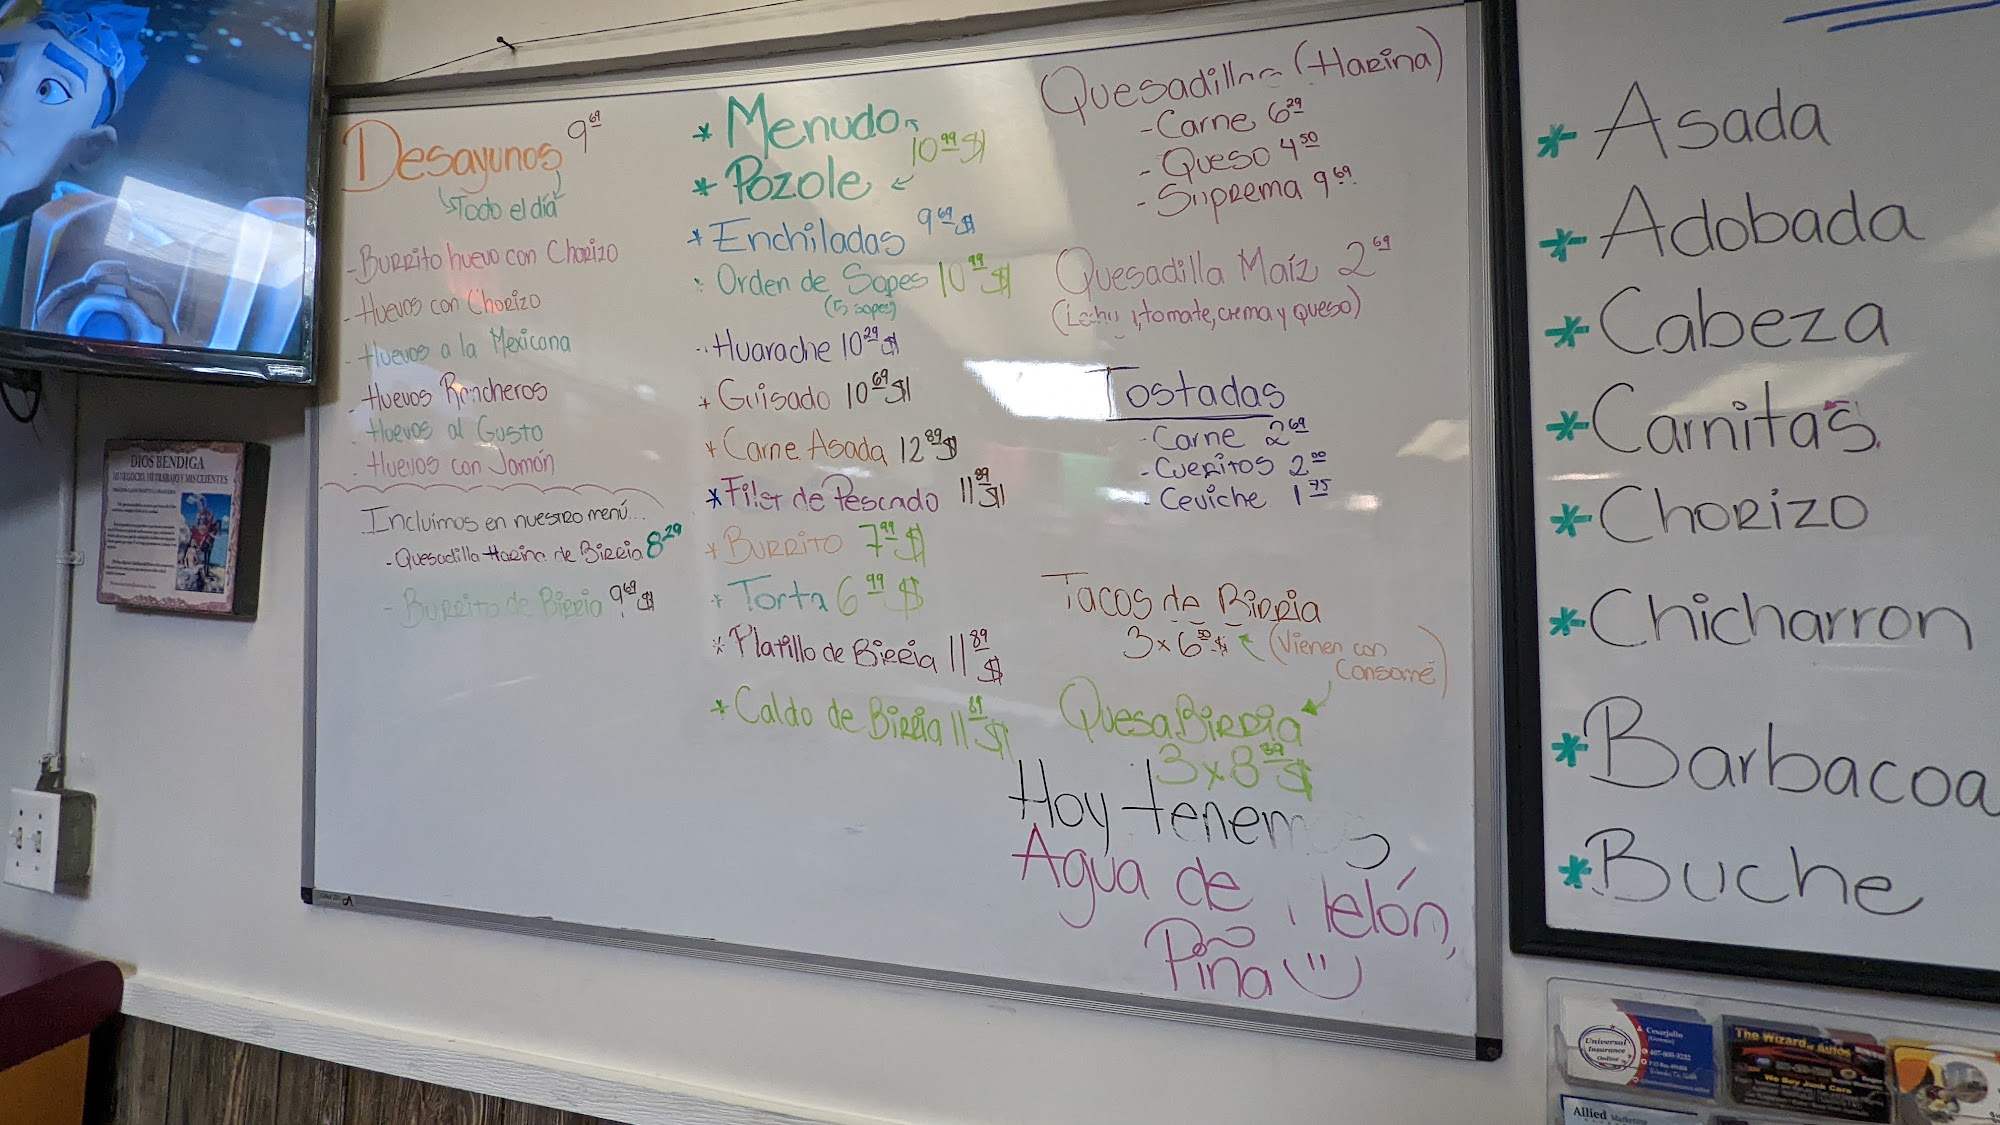 Desayunos 9.69
Todo el día
- Burrito huevo con Chorizo
- Huevos con Chorizo
- Huevos a la Mexicana
- Huevos Rancheros
- Huevos al Gusto
- Huevos con Jamón
Incluimos en nuestro menú...
- Quesadilla Harina de Birria 8.29
- Burrito de Birria 9.69 $
* Menudo
10.99 $
* Pozole
* Enchiladas 9.69 $
Orden de Sopes 10.99 $
(5 sopes)
Huarache 10.29 $
* Guisado 10.69 $
* Carne Asada 12.89 $
* Filet de Pescado 11.89 $
* Burrito 7.99 $
* Torta 6.99 $
* Platillo de Birria 11.89 $
* Caldo de Birria 11.89 $
Quesadillas (Harina)
- Carne 6.29
- Queso 4.50
- Suprema 9.69
Quesadilla Maíz 2.69
tomate, crema y queso)
Tostadas
- Carne 2.69
- Cueritos 2.00
- Ceviche 1.75
Tacos de Birria
3 x 6.50 $ (Vienen con
consomé)
QuesaBirria
3 x 8.89 $
Hoy tenemos
Agua de Melón,
Piña
* Asada
* Adobada
* Cabeza
* Carnitas
* Chorizo
* Chicharron
* Barbacoa
* Buche
DIOS BENDIGA
MI NEGOCIO, MI TRABAJO Y MIS CLIENTES
Universal
Insurance
Online
Cesarjulio
The Wizard of Autos
We Buy Junk Cars
Allied Marketing